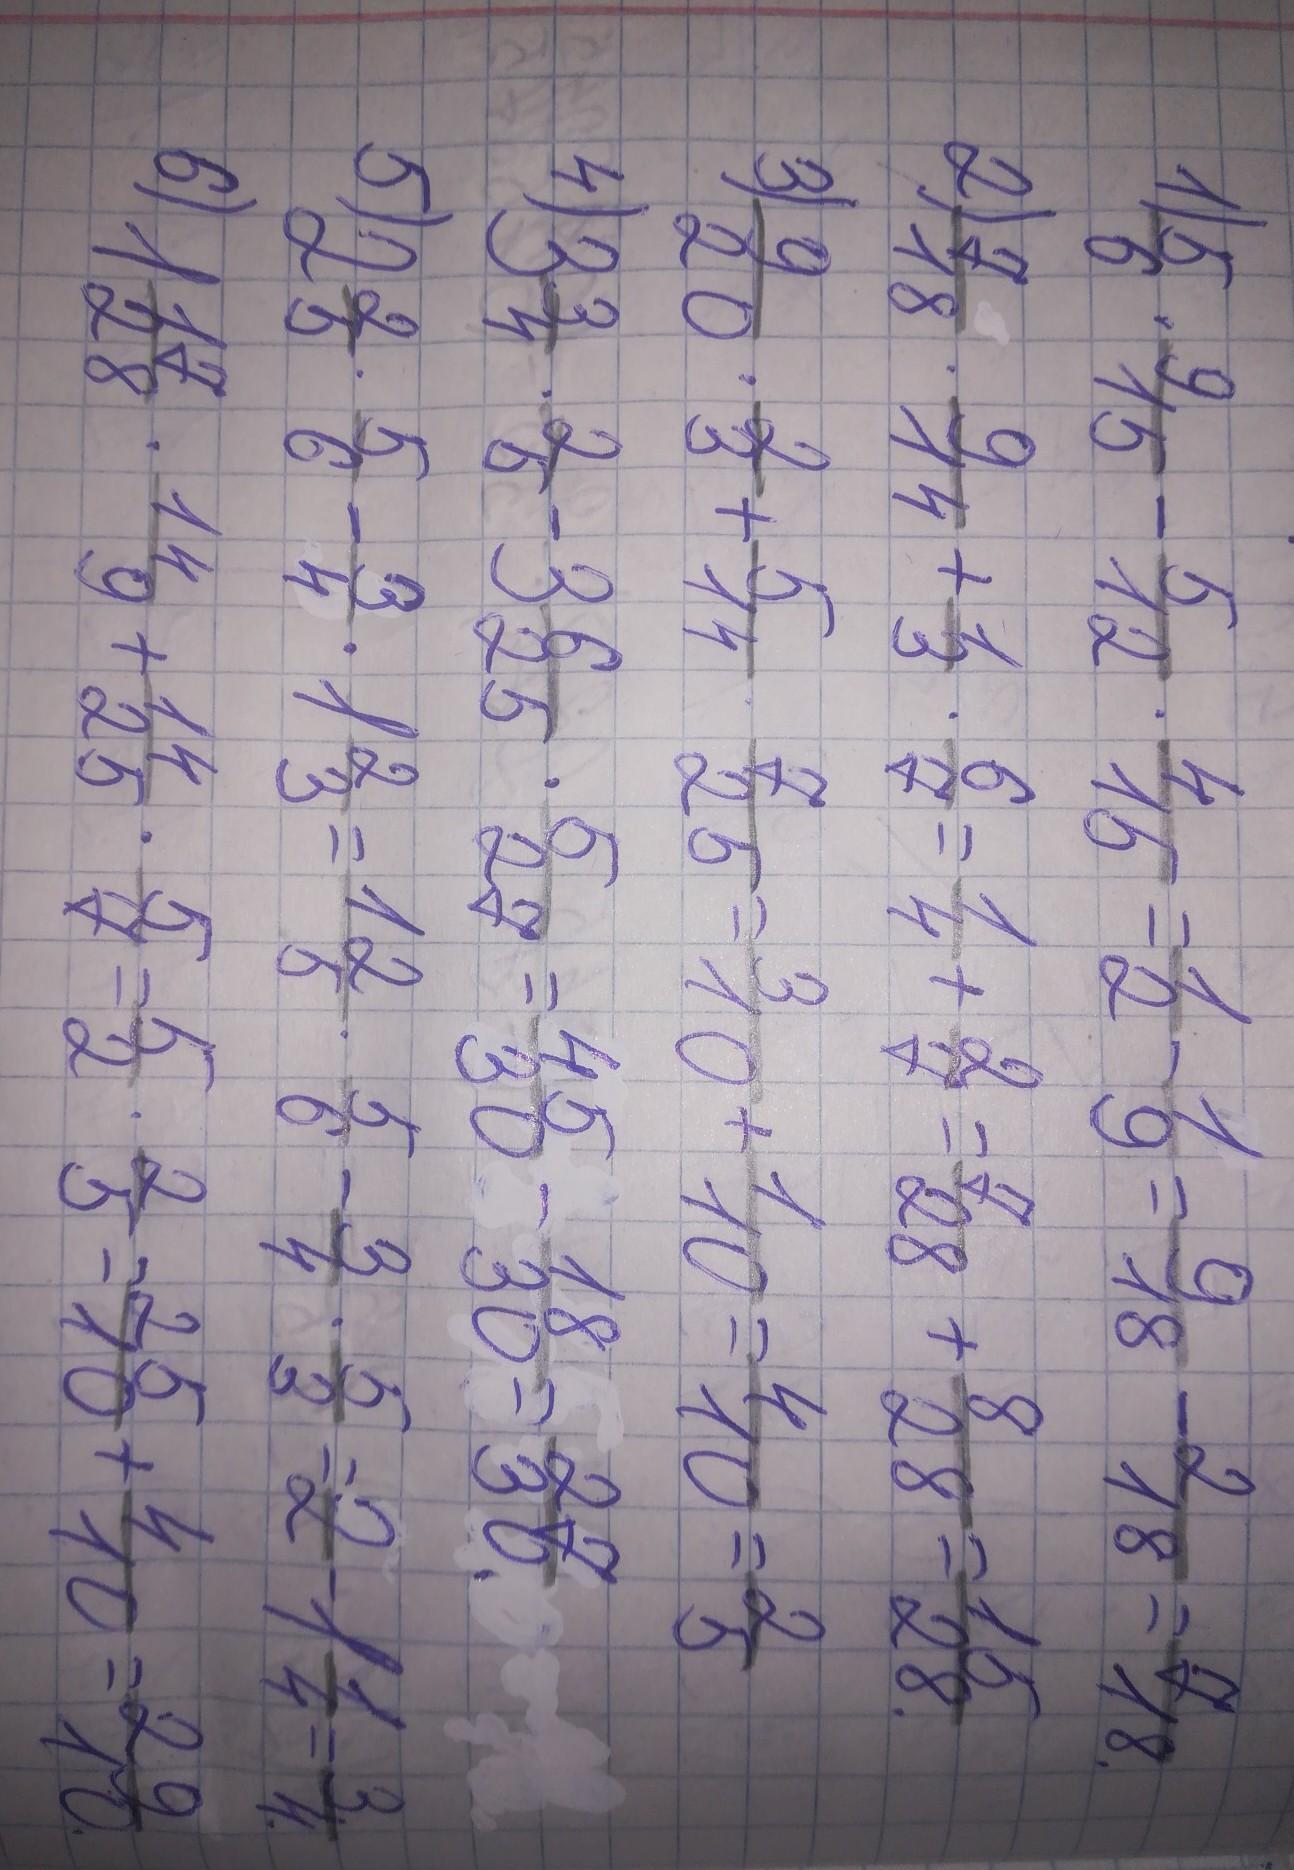 1) 5/6 · 9/15 - 5/12 · 4/15 = 1/2 - 1/9 = 9/18 - 2/18 = 7/18.
2) 7/18 · 9/14 + 1/3 · 6/7 = 1/4 + 2/7 = 7/28 + 8/28 = 15/28.
3) 9/20 · 2/3 + 5/14 · 7/25 = 3/10 + 1/10 = 4/10 = 2/5
4) 3 3/4 · 2/5 - 3 6/25 · 5/27 = 45/30 - 18/30 = 27/30.
5) 2 2/5 · 5/6 - 3/4 · 1 2/3 = 12/5 · 5/6 - 3/4 · 5/3 = 2/2 - 1 1/4 = 3/4.
6) 1 17/28 · 14/9 + 14/25 · 5/7 = 5/2 · 2/5 = 25/10 + 4/10 = 29/10.